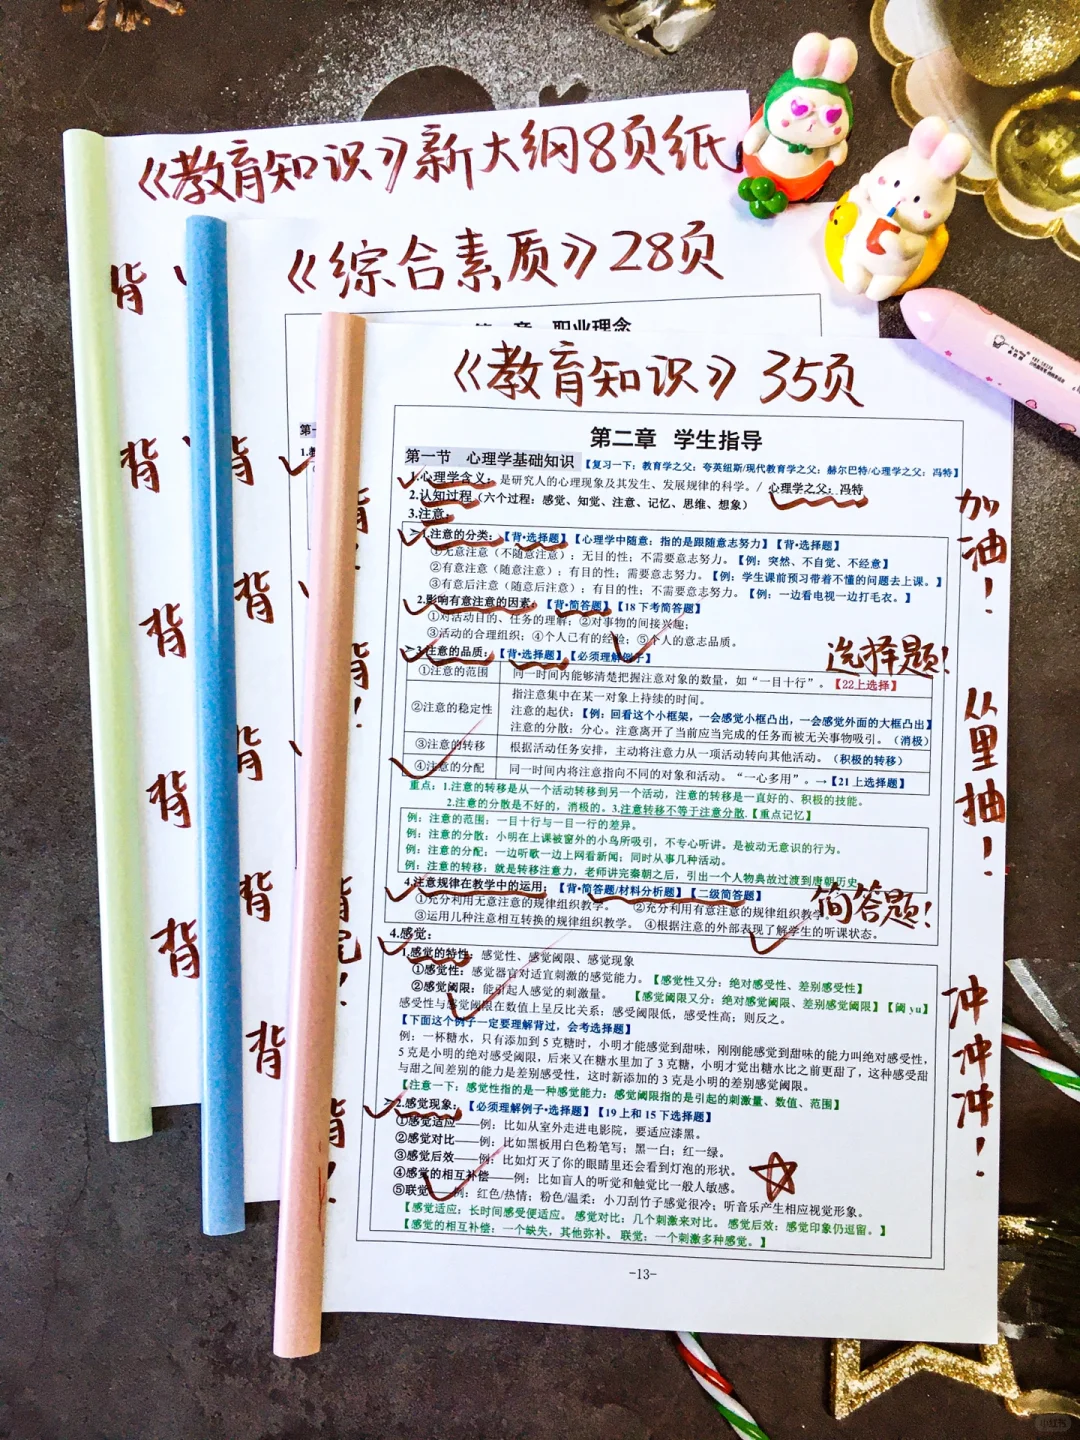 《教育知识》新大纲8页纸
《综合素质》28页
职业理念
《教育知识》35页
第二章 学生指导
第一节 心理学基础知识【复习一下：教育学之父：夸美纽斯/现代教育学之父：赫尔巴特/心理学之父：冯特】
1.心理学含义：是研究人的心理现象及其发生、发展规律的科学。/ 心理学之父：冯特
2.认知过程（六个过程：感觉、知觉、注意、记忆、思维、想象）
3.注意：
1.注意的分类：【背·选择题】【心理学中随意：指的是跟随意志努力】【背·选择题】
①无意注意（不随意注意）：无目的性；不需要意志努力。【例：突然、不自觉、不经意】
②有意注意（随意注意）：有目的性；需要意志努力。【例：学生课前预习带着不懂的问题去上课。】
③有意后注意（随意后注意）：有目的性；不需要意志努力。【例：一边看电视一边打毛衣。】
2.影响有意注意的因素：【背·简答题】【18下考简答题】
①对活动目的、任务的理解；②对事物的间接兴趣；
③活动的合理组织；④个人已有的经验；⑤个人的意志品质。
3.注意的品质：【背·选择题】【必须理解例子】
①注意的范围 同一时间内能够清楚把握注意对象的数量，如“一目十行”。【22上选择】
②注意的稳定性 指注意集中在某一对象上持续的时间。
注意的起伏：【例：回看这个小框架，一会感觉小框凸出，一会感觉外面的大框凸出】
注意的分散：分心。注意离开了当前应当完成的任务而被无关事物吸引。（消极）
③注意的转移 根据活动任务安排，主动将注意力从一项活动转向其他活动。（积极的转移）
④注意的分配 同一时间内将注意指向不同的对象和活动。“一心多用”。→【21上选择题】
重点：1.注意的转移是从一个活动转移到另一个活动，注意的转移是一直好的、积极的技能。
2.注意的分散是不好的，消极的。3.注意转移不等于注意分散.【重点记忆】
例：注意的范围：一目十行与一目一行的差异。
例：注意的分散：小明在上课被窗外的小鸟所吸引，不专心听讲。是被动无意识的行为。
例：注意的分配：一边听歌一边上网看新闻；同时从事几种活动。
例：注意的转移：就是转移注意力，老师讲完秦朝之后，引出一个人物典故过渡到唐朝历史
4.注意规律在教学中的运用：【背·简答题/材料分析题】【二级简答题】
①充分利用无意注意的规律组织教学。 ②充分利用有意注意的规律组织教学
③运用几种注意相互转换的规律组织教学。 ④根据注意的外部表现了解学生的听课状态。
4.感觉：
1.感觉的特性：感觉性、感觉阈限、感觉现象
①感觉性：感觉器官对适宜刺激的感觉能力。【感觉性又分：绝对感受性、差别感受性】
②感觉阈限：能引起人感觉的刺激量。 【感觉阈限又分：绝对感觉阈限、差别感觉阈限】【阈 yu】
感觉性与感觉阈限在数值上呈反比关系：感受阈限低，感受性高；则反之。
【下面这个例子一定要理解背过，会考选择题】
例：一杯糖水，只有添加到5克糖时，小明才能感觉到甜味，刚刚能感觉到甜味的能力叫绝对感受性，
5克是小明的绝对感受阈限，后来又在糖水里加了3克糖，小明才觉出糖水比之前更甜了，这种感受甜
与甜之间差别的能力是差别感受性，这时新添加的3克是小明的差别感觉阈限。
【注意一下：感觉性指的是一种感觉能力；感觉阈限指的是引起的刺激量、数值、范围】
2.感觉现象：【必须理解例子·选择题】【19上和15下选择题】
①感觉适应——例：比如从室外走进电影院，要适应漆黑。
②感觉对比——例：比如黑板用白色粉笔写；黑一白；红一绿。
③感觉后效——例：比如灯灭了你的眼睛里还会看到灯泡的形状。
④感觉的相互补偿——例：比如盲人的听觉和触觉比一般人敏感。
⑤联觉——例：红色/热情；粉色/温柔；小刀刮竹子感觉很冷；听音乐产生相应视觉形象。
【感觉适应：长时间感受便适应。感觉对比：几个刺激来对比。感觉后效：感觉印象仍逗留。】
【感觉的相互补偿：一个缺失，其他弥补。联觉：一个刺激多种感觉。】
-13-
选择题！
简答题！
加油！
从里抽！
冲冲冲！
背
背
背
背
背
背
背
背
背
背
小红书